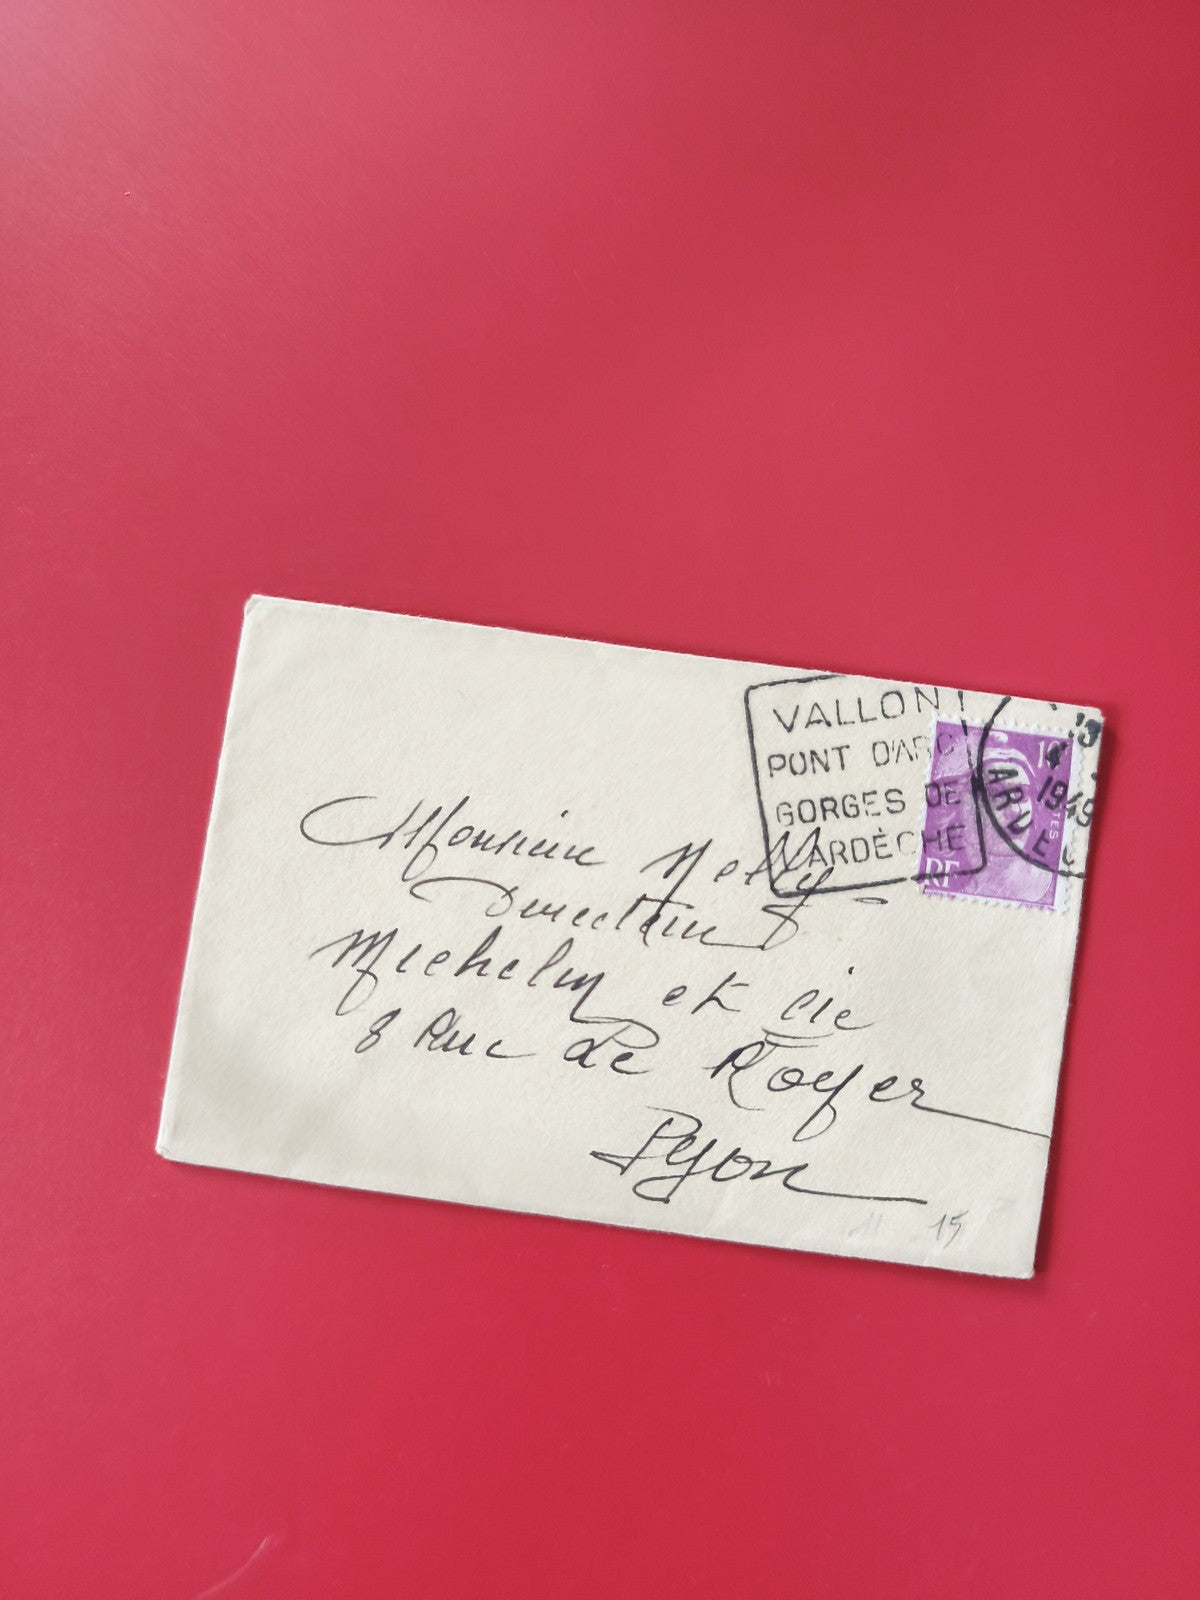 VALLON
PONT D'ARC
GORGES DE
L'ARDÈCHE
13
4
1949
ARDE
10
RF
Monsieur Nelly
Directeur
Michelin et Cie
8 Rue de Royer
Lyon
15